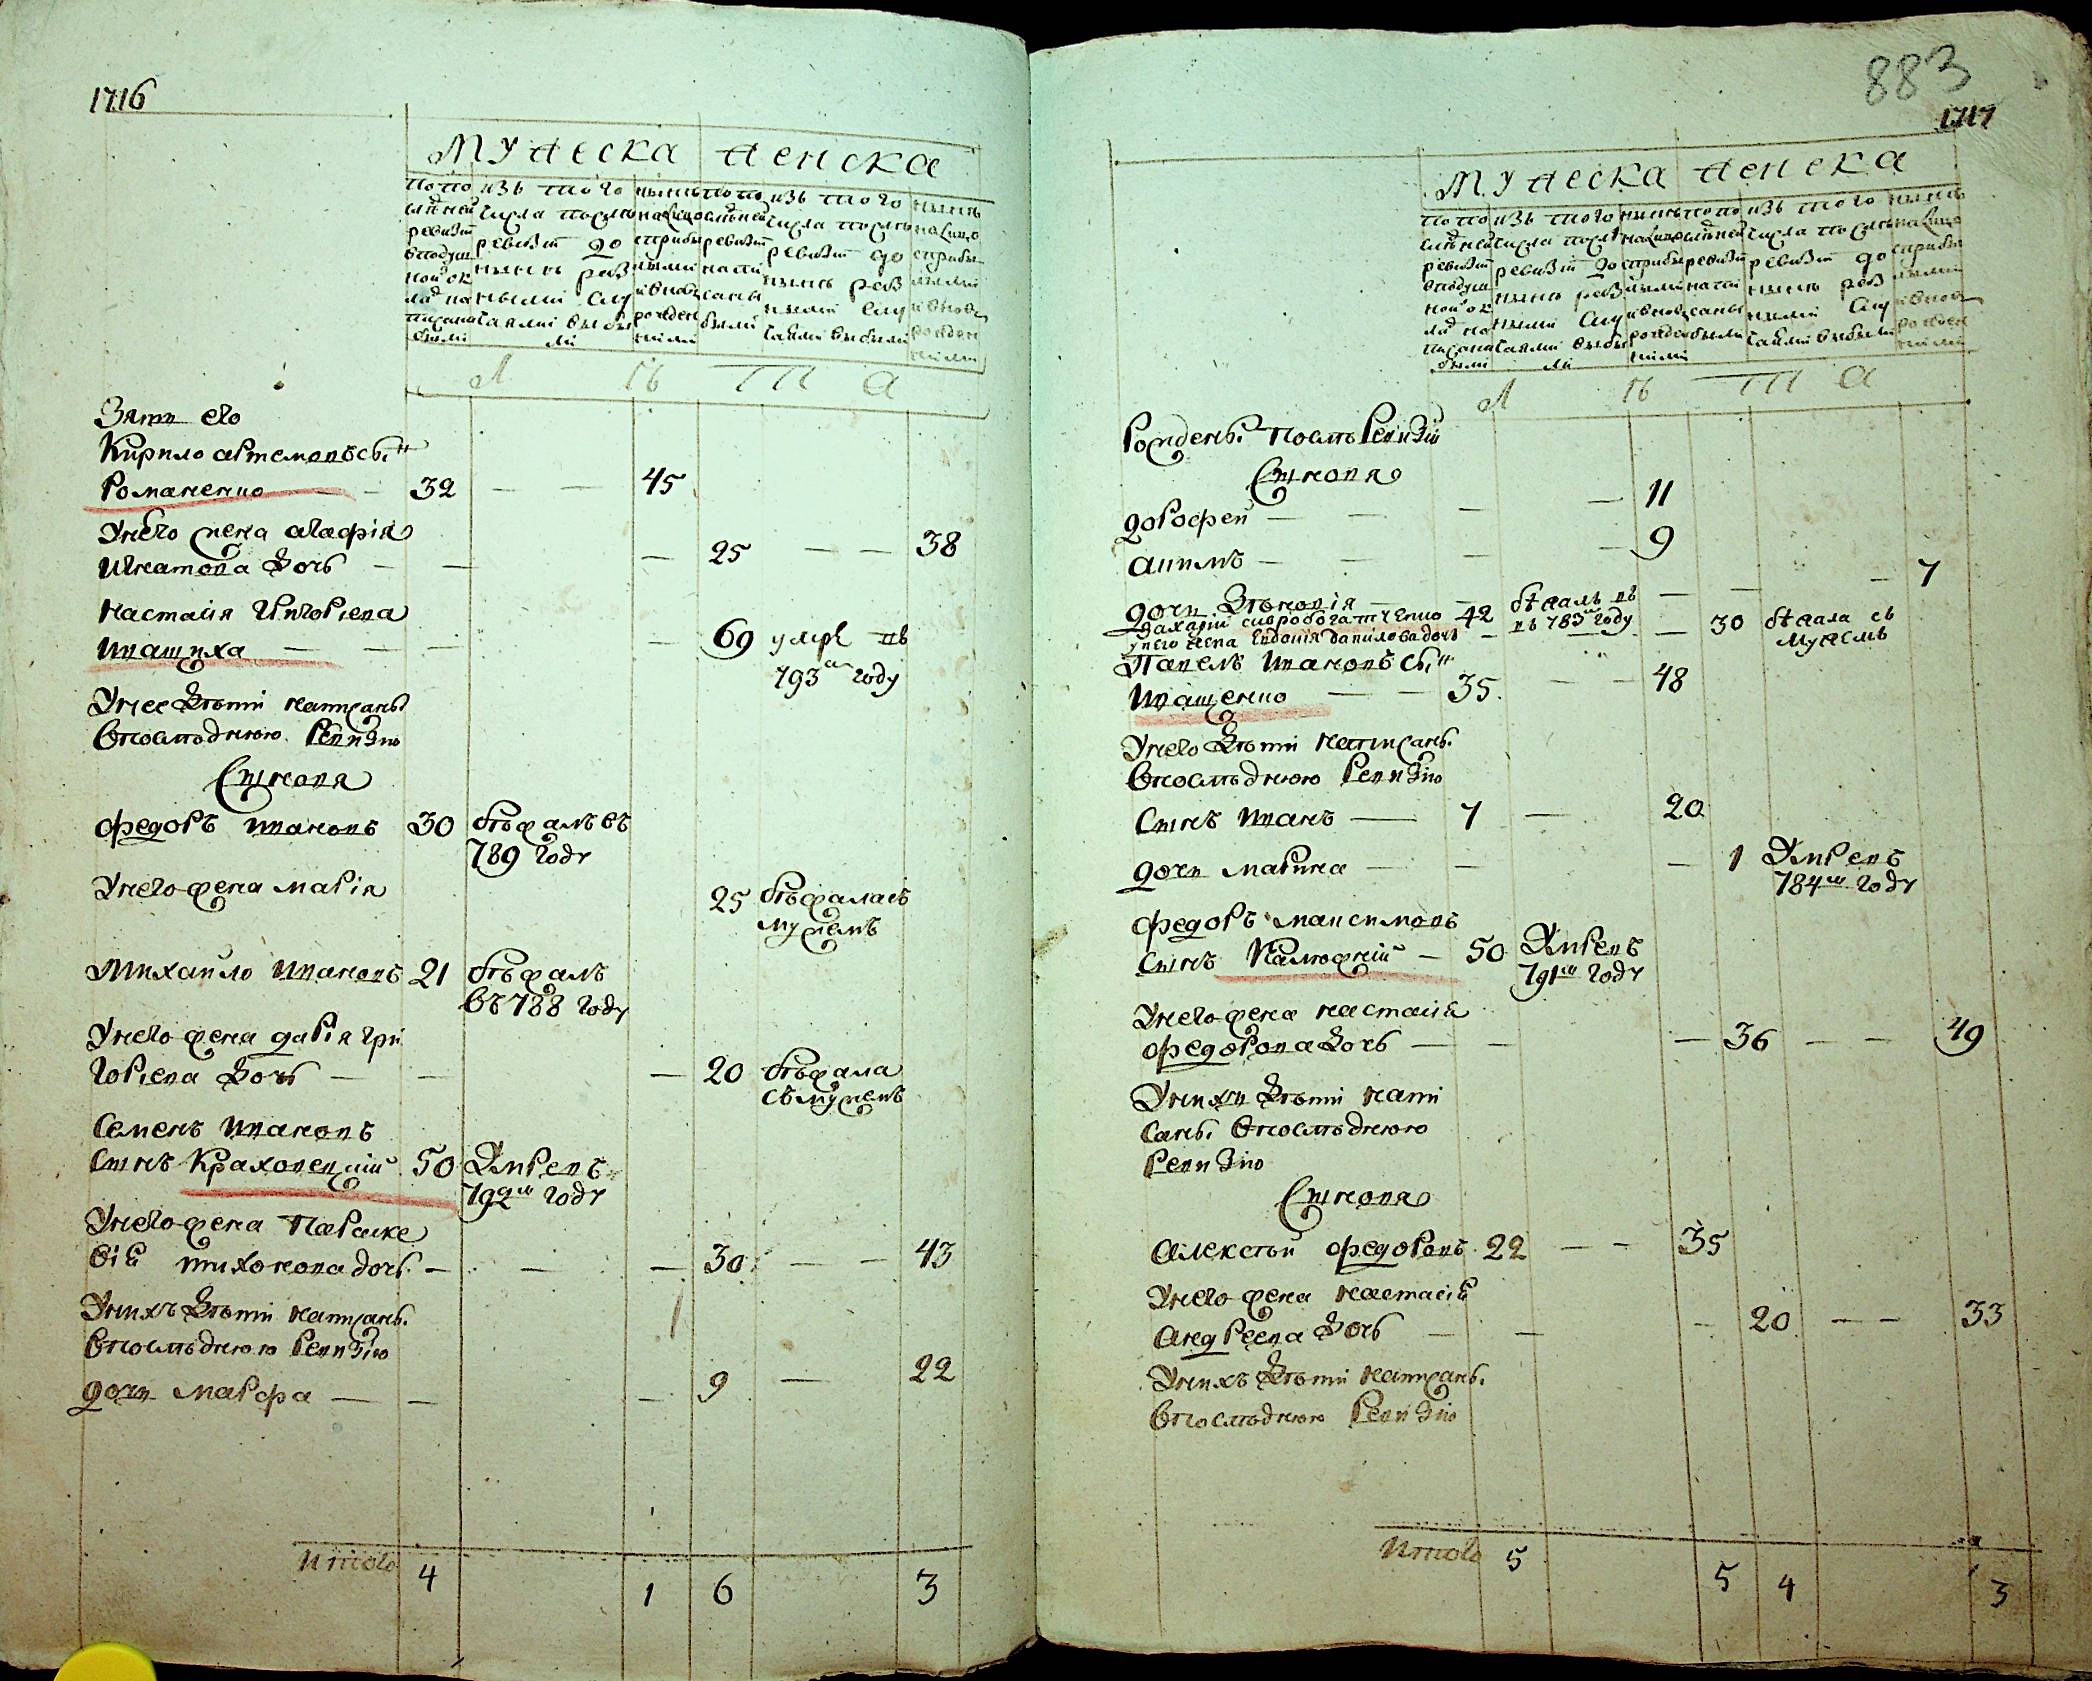 1716
мужеска женска
по по
слѣдней
ревизіи
въ подуш
ной ок
лад на
писано
были
изъ того
числа послѣ
ревизіи до
нынѣ раз
ными слу
чаями выбы
ли
нынѣ
на лицо
с прибы
лыми
и вновь
рожден
ными
по по
слѣдней
ревизіи
напи
саны
были
изъ того
числа послѣ
ревизіи до
нынѣ раз
ными слу
чаями выбыли
нынѣ
на лицо
с прибы
лыми
и вновь
рожден
ными
л ѣ т а
Зять его
Кирило артемовъ сы͞н
Романенко — — 32 — — 45
У него жена агафія
Игнатова дочь — — — 25 — — 38
настасія Григорiева
Иващиха — — — — 69 умре въ
793 году
У нее дѣти написаны
в последнюю Ревизiю
Сыновя
федоръ ивановъ 30 бѣжалъ въ
789 году
У него жена марiя 25 бѣжала съ
мужемъ
Михайло ивановъ 21 бѣжалъ
въ 788 году
У него жена дарiя гри
горiева дочь — — — 20 бѣжала
съ мужемъ
Семенъ ивановъ
сынъ Краховецкiй 50 Умревъ
792м году
У него жена Параске
вiя тихонова дочь — — — 30 — — 43
У нихъ дѣти написаны
в последнюю Ревизiю
дочи марфа — — — 9 — 22
Итого 4 1 6 3
883
1717
мужеска женска
по по
слѣдней
ревизіи
въ подуш
ной ок
лад на
писано
были
изъ того
числа послѣ
ревизіи до
нынѣ раз
ными слу
чаями выбы
ли
нынѣ
на лицо
с прибы
лыми
и вновь
рожден
ными
по по
слѣдней
ревизіи
напи
саны
были
изъ того
числа послѣ
ревизіи до
нынѣ раз
ными слу
чаями выбыли
нынѣ
на лицо
с прибы
лыми
и вновь
рожден
ными
л ѣ т а
Рождены после Ревизiи
Сыновя
дорофей — — — — 11
акимъ — — — — 9
дочи Зѣновiя — — — — — 7
Захарiй сиробогатченко 42 бежалъ въ
въ 783м году
у него жена Евдокiя данилова дочь — — — 30 бежала съ
мужемъ
Павелъ ивановъ сы͞н
Иващенко — — 35 — — 48
У него дѣти написаны
в последнюю Ревизiю
Сынъ иванъ — 7 — 20
дочи марина — — — 1 Умревъ
784м году
федоръ максимовъ
сынъ Калюжнiй — 50 Умревъ
791м году
У него жена настасiя
федорова дочь — — — 36 — — 49
У нихъ дѣти напи
саны в последнюю
Ревизiю
Сыновя
алексѣй федоровъ 22 — — 35
У него жена настасiя
андреева дочь — — — 20 — — 33
У нихъ дѣти написаны
в последнюю Ревизiю
Итого 5 5 4 3